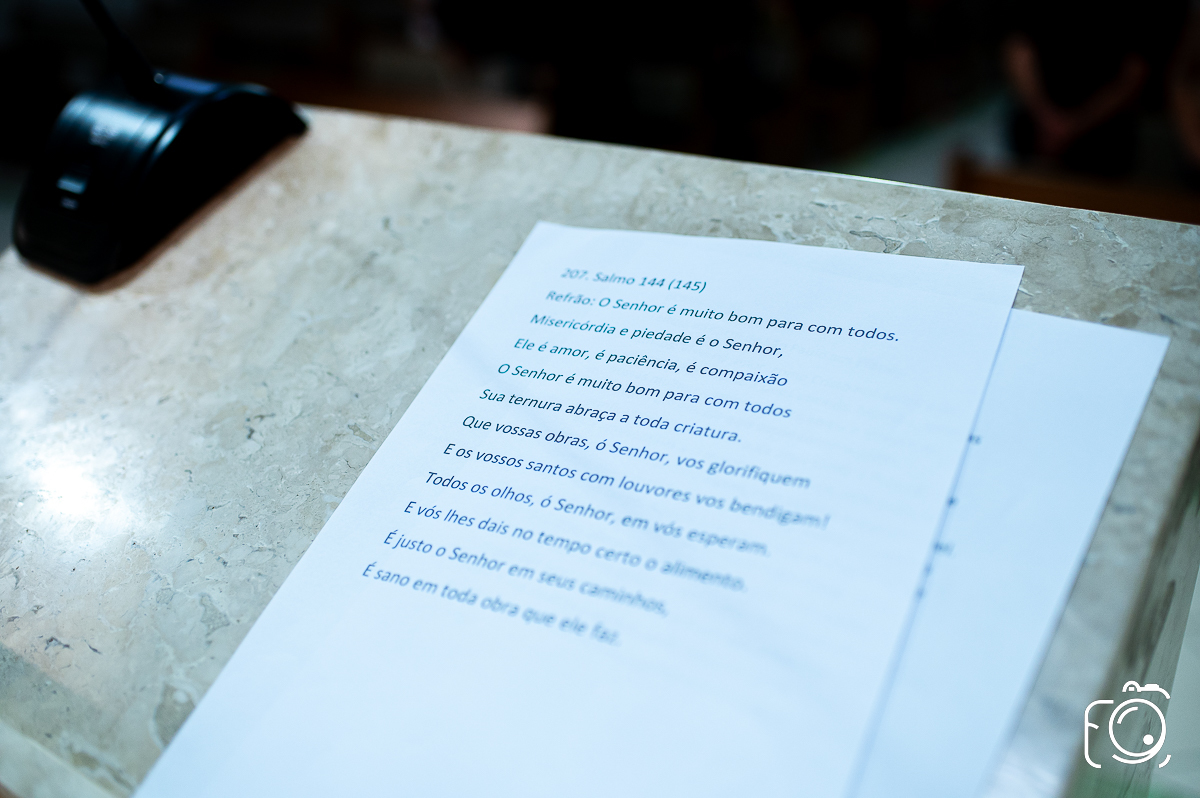 207. Salmo 144 (145)
Refrão: O Senhor é muito bom para com todos.
Misericórdia e piedade é o Senhor,
Ele é amor, é paciência, é compaixão
O Senhor é muito bom para com todos
Sua ternura abraça a toda criatura.
Que vossas obras, ó Senhor, vos glorifiquem
E os vossos santos com louvores vos bendigam!
Todos os olhos, ó Senhor, em vós esperam.
E vós lhes dais no tempo certo o alimento.
É justo o Senhor em seus caminhos,
É sano em toda obra que ele faz.